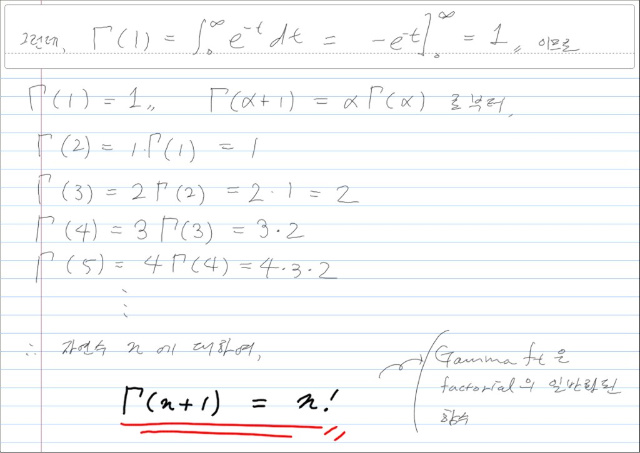 그런데, Γ(1) = ∫₀^∞ e^-t dt = -e^-t]₀^∞ = 1,, 이므로
Γ(1) = 1,, Γ(α+1) = αΓ(α) 로부터,
Γ(2) = 1·Γ(1) = 1
Γ(3) = 2Γ(2) = 2·1 = 2
Γ(4) = 3Γ(3) = 3·2
Γ(5) = 4Γ(4) = 4·3·2
⋮
∴ 자연수 n 에 대하여,
Γ(n+1) = n!
Gamma ft 은
factorial의 일반화된
함수